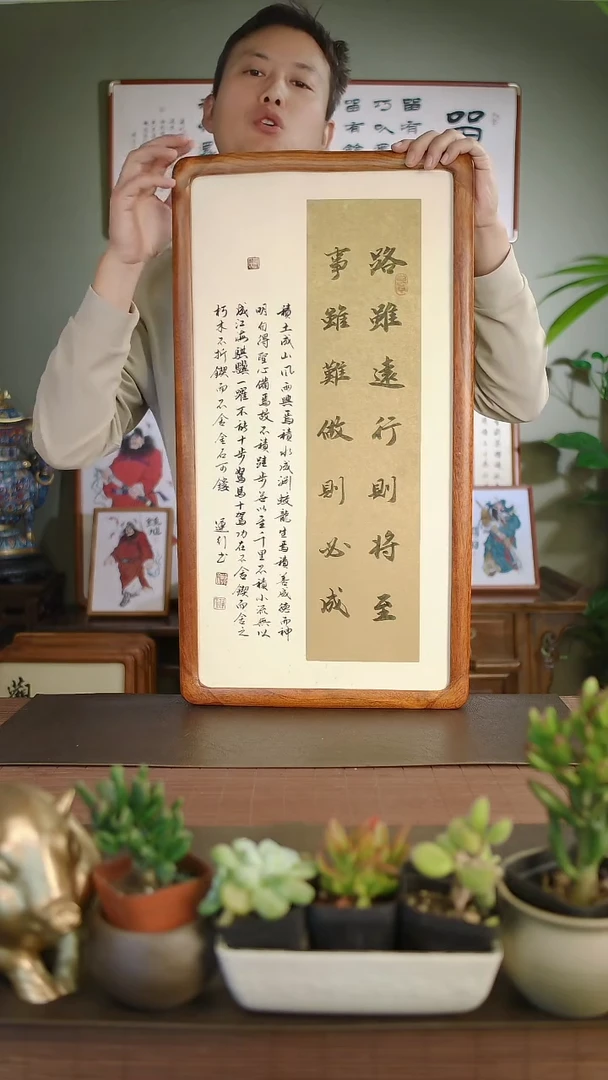 路雖遠行則將至
事雖難做則必成
積土成山风雨興焉積水成渊蛟龍生焉積善成德而神
明自得聖心備焉故不積跬步无以至千里不積小流無以
成江海騏驥一躍不能十步駑馬十駕功在不舍鍥而舍之
朽木不折鍥而不舍金石可鏤